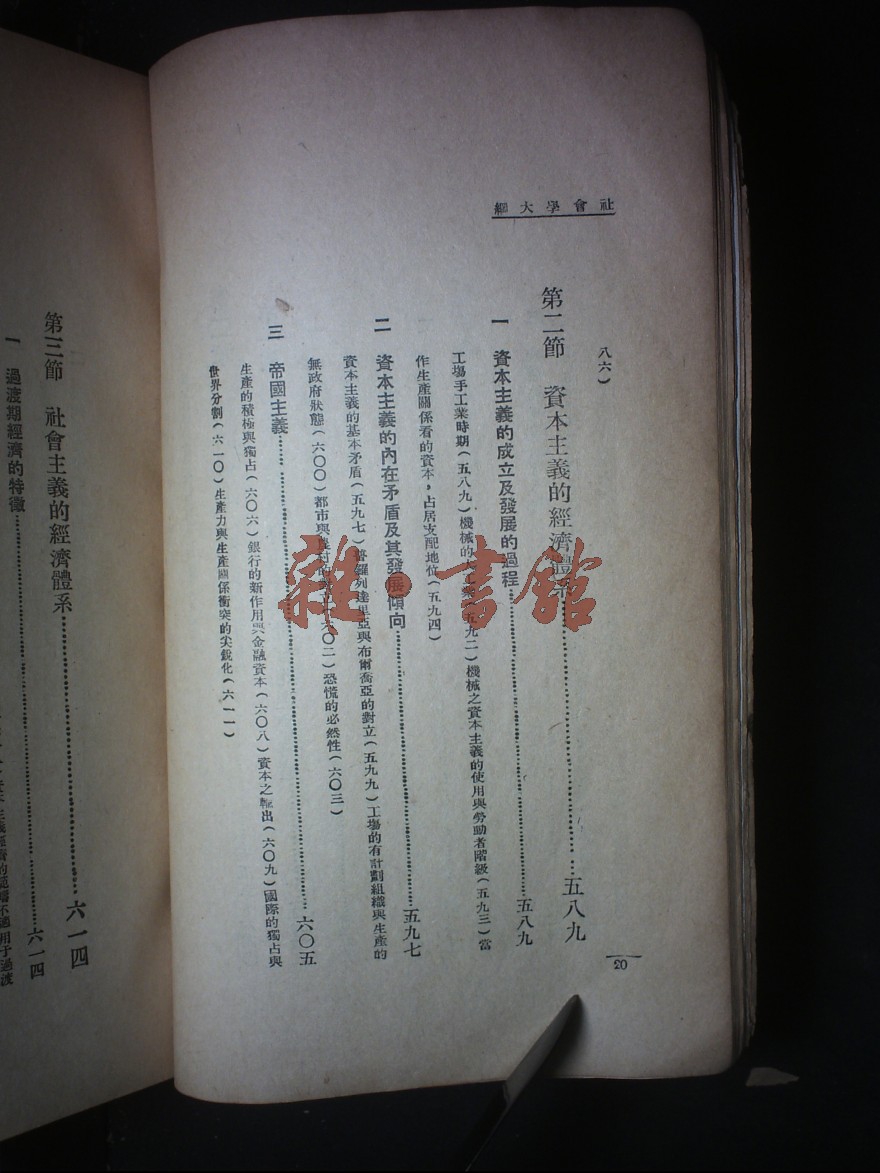 社會學大綱
八六)
第二節　資本主義的經濟體系……五八九
一　資本主義的成立及發展的過程……五八九
工場手工業時期(五八九)機械的大工業(五九二)機械之資本主義的使用與勞動者階級(五九三)當
作生產關係看的資本，占居支配地位(五九四)
二　資本主義的內在矛盾及其發展傾向……五九七
資本主義的基本矛盾(五九七)普羅列達里亞與布爾喬亞的對立(五九九)工場的有計劃組織與生產的
無政府狀態(六〇〇)都市與農村的對立(六〇二)恐慌的必然性(六〇三)
三　帝國主義……六〇五
生產的積極與獨占(六〇六)銀行的新作用與金融資本(六〇八)資本之輸出(六〇九)國際的獨占與
世界分割(六一〇)生產力與生產關係衝突的尖銳化(六一一)
20
第三節　社會主義的經濟體系……六一四
一　過渡期經濟的特徵……六一四
主義經濟的範疇不適用于過渡
雜·書館